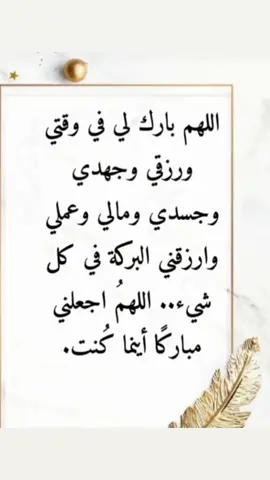 اللهم بارك لي في وقتي
ورزقي وجهدي
وجسدي ومالي وعملي
وارزقني البركة في كل
شيء.. اللهمُ اجعلني
مباركًا أينما كُنت.